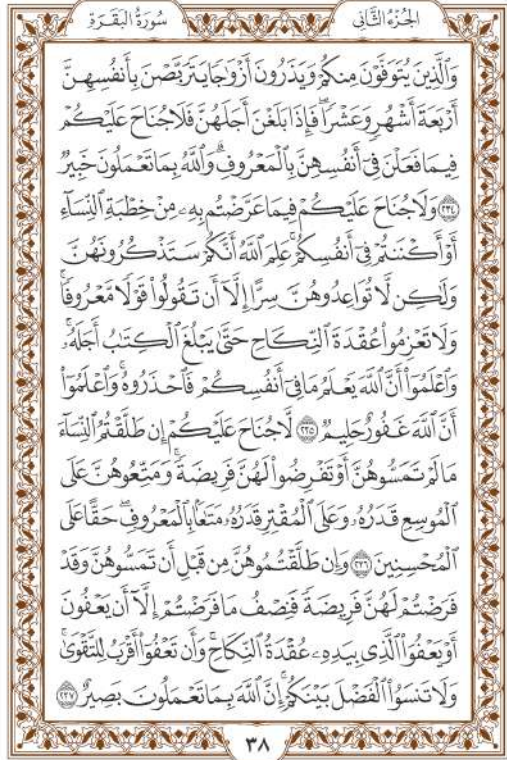 الجُزْءُ الثَّانِي
سُورَةُ البَقَرَةِ
وَالَّذِينَ يُتَوَفَّوْنَ مِنكُمْ وَيَذَرُونَ أَزْوَاجًا يَتَرَبَّصْنَ بِأَنفُسِهِنَّ
أَرْبَعَةَ أَشْهُرٍ وَعَشْرًا ۖ فَإِذَا بَلَغْنَ أَجَلَهُنَّ فَلَا جُنَاحَ عَلَيْكُمْ
فِيمَا فَعَلْنَ فِيٓ أَنفُسِهِنَّ بِالْمَعْرُوفِ ۗ وَاللَّهُ بِمَا تَعْمَلُونَ خَبِيرٌ
﴿٢٣٤﴾ وَلَا جُنَاحَ عَلَيْكُمْ فِيمَا عَرَّضْتُم بِهِۦ مِنْ خِطْبَةِ النِّسَآءِ
أَوْ أَكْنَنتُمْ فِيٓ أَنفُسِكُمْ ۚ عَلِمَ اللَّهُ أَنَّكُمْ سَتَذْكُرُونَهُنَّ
وَلَٰكِن لَّا تُوَاعِدُوهُنَّ سِرًّا إِلَّآ أَن تَقُولُوا۟ قَوْلًا مَّعْرُوفًا ۚ
وَلَا تَعْزِمُوا۟ عُقْدَةَ النِّكَاحِ حَتَّىٰ يَبْلُغَ الْكِتَٰبُ أَجَلَهُۥ ۚ
وَاعْلَمُوٓا۟ أَنَّ اللَّهَ يَعْلَمُ مَا فِيٓ أَنفُسِكُمْ فَاحْذَرُوهُ ۚ وَاعْلَمُوٓا۟
أَنَّ اللَّهَ غَفُورٌ حَلِيمٌ ﴿٢٣٥﴾ لَّا جُنَاحَ عَلَيْكُمْ إِن طَلَّقْتُمُ النِّسَآءَ
مَا لَمْ تَمَسُّوهُنَّ أَوْ تَفْرِضُوا۟ لَهُنَّ فَرِيضَةً ۚ وَمَتِّعُوهُنَّ عَلَى
الْمُوسِعِ قَدَرُهُۥ وَعَلَى الْمُقْتِرِ قَدَرُهُۥ مَتَٰعًۢا بِالْمَعْرُوفِ ۖ حَقًّا عَلَى
الْمُحْسِنِينَ ﴿٢٣٦﴾ وَإِن طَلَّقْتُمُوهُنَّ مِن قَبْلِ أَن تَمَسُّوهُنَّ وَقَدْ
فَرَضْتُمْ لَهُنَّ فَرِيضَةً فَنِصْفُ مَا فَرَضْتُمْ إِلَّآ أَن يَعْفُونَ
أَوْ يَعْفُوَا۟ الَّذِي بِيَدِهِۦ عُقْدَةُ النِّكَاحِ ۚ وَأَن تَعْفُوٓا۟ أَقْرَبُ لِلتَّقْوَىٰ ۚ
وَلَا تَنسَوُا۟ الْفَضْلَ بَيْنَكُمْ ۚ إِنَّ اللَّهَ بِمَا تَعْمَلُونَ بَصِيرٌ ﴿٢٣٧﴾
٣٨